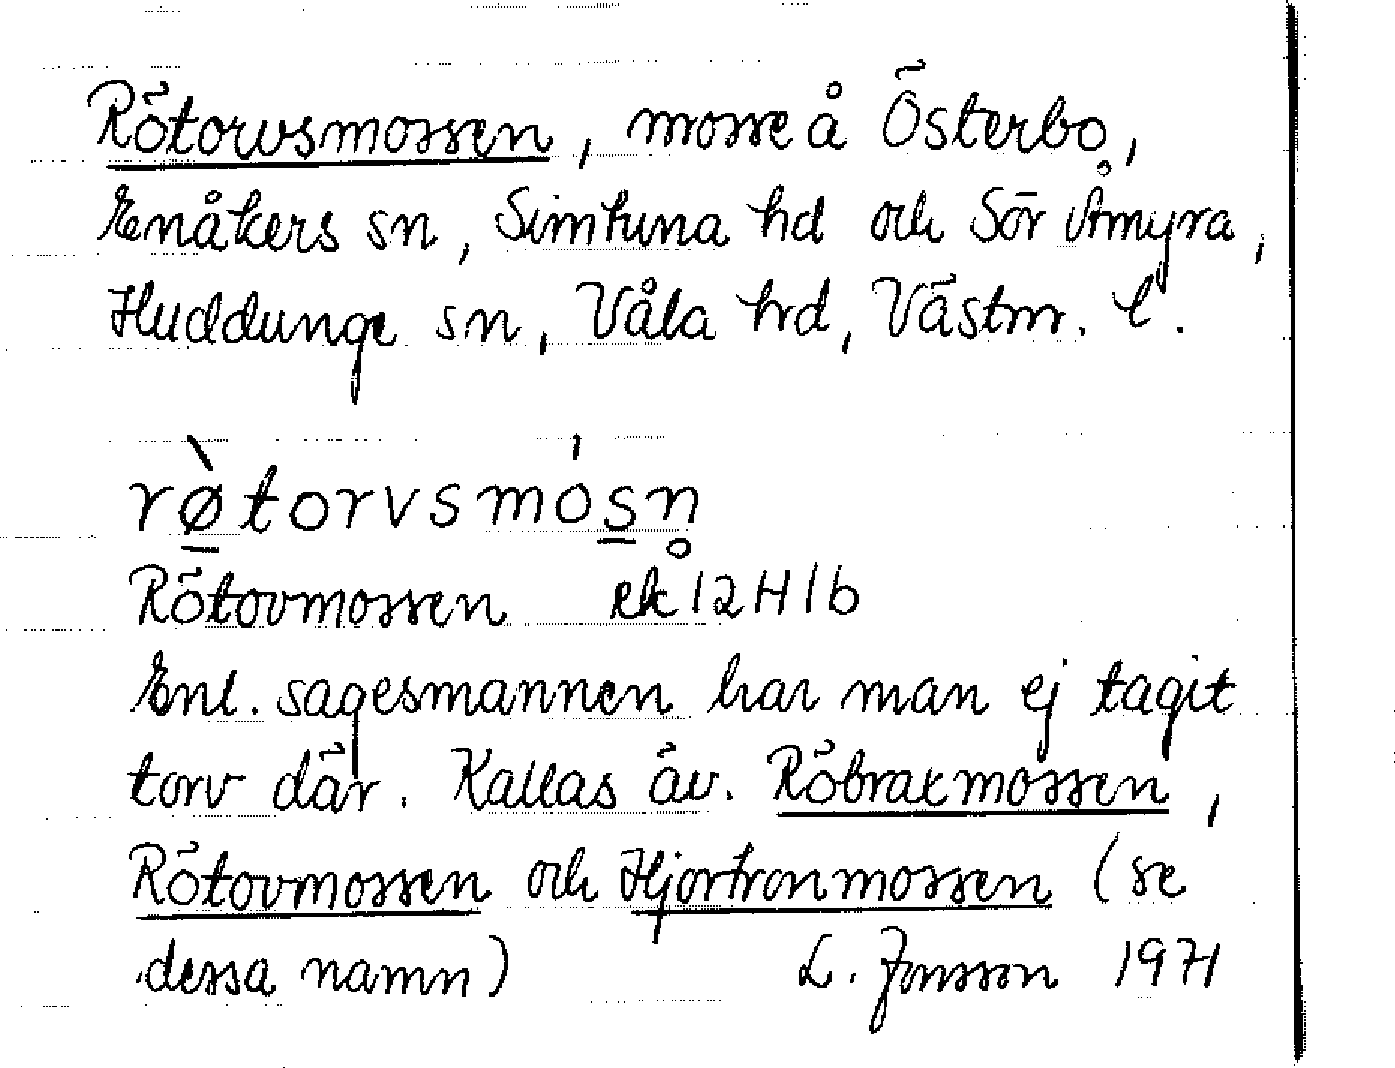 Rötorvsmossen, mosse å Österbo,
Enåkers sn, Simtuna hd och Sör Åmyra,
Huddunge sn, Våla hd, Västm. l.
rø̀torvsmósn̥
Rötovmossen ek 12 H 1 b
Enl. sagesmannen har man ej tagit
torv där. Kallas äv. Röbraxmossen,
Rötovmossen och Hjortronmossen (se
dessa namn) L. Jonsson 1971